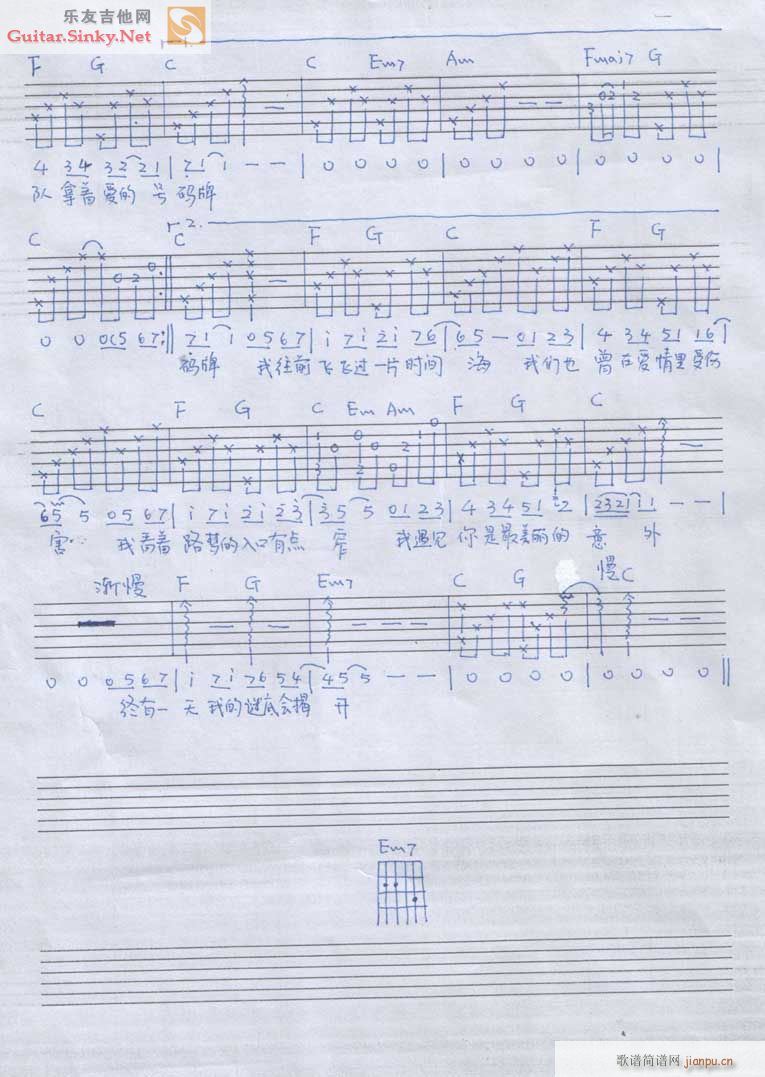 乐友吉他网
Guitar.Sinky.Net
F G C C Em7 Am Fmaj7 G
4 34 32 21 | 71 1 - - | 0 0 0 0 | 0 0 0 0 | 0 0 0 0 |
队 拿着 爱的 号 码牌
2.
C C F G C F G
0 0 0567 :|| 71 1 0567 | i 7i 2i 76 | 65 - 01 23 | 4 34 51 16 |
码牌 我往前飞 飞过一片时间 海 我们也 曾在爱情里受伤
C F G C Em Am F G C
65 5 0567 | i 7i 2i 23 | 35 5 01 23 | 4 34 51 2 | 2321 11 - - |
害 我看着 路梦的入口有点 窄 我遇见 你是最美丽的 意 外
渐慢 F G Em7 C G 慢 C
0 0 0567 | i 7i 76 54 | 45 5 - - | 0 0 0 0 | 0 0 0 0 ||
终有一 天 我的谜底会揭 开
Em7
歌谱简谱网 jianpu.cn